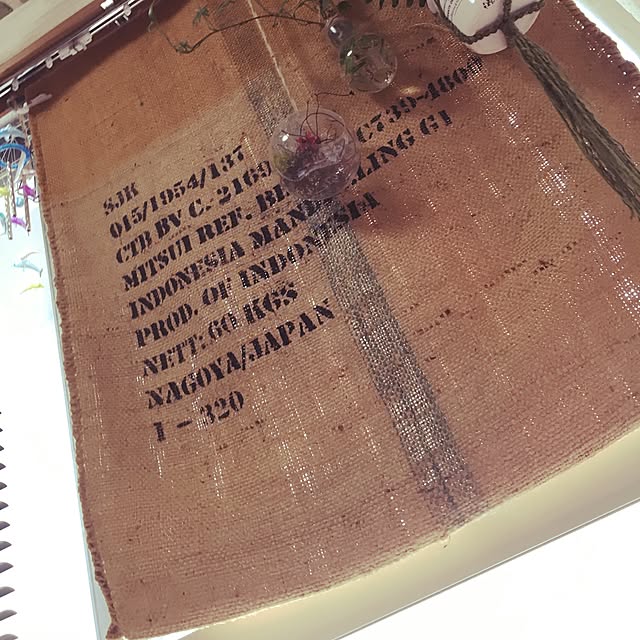 SJK
015/1954/137
CTR BV C. 2169 C739-4800
MITSUI REF. LING G1
INDONESIA
PROD. OF INDONESIA
NETT: 60 KGS
NAGOYA/JAPAN
1 - 320